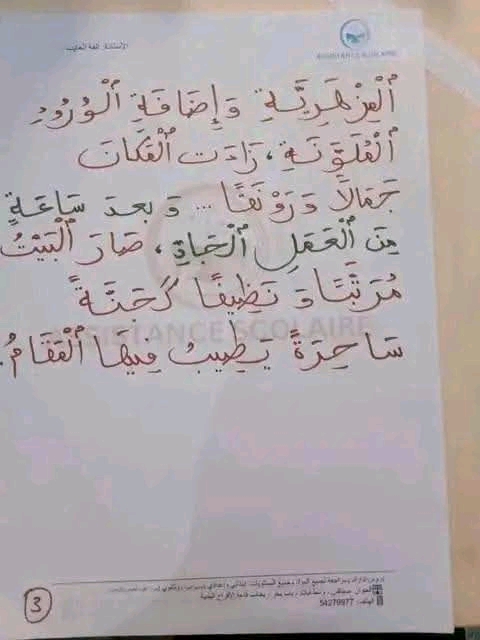 الأستاذة: ألفة الحاجب
ASSISTANCE SCOLAIRE
الْمِزْهَرِيَّةِ وَإِضَافَةِ الْوُرُودِ
الْمُلَوَّنَةِ، زَادَت الْمَكَانَ
جَمَالاً وَرَوْنَقًا ... وَ بعدَ سَاعَةٍ
مِنَ الْعَمَلِ الْجَادِّ، صَارَ الْبَيْتُ
مُرَتَّبًا وَ نَظِيفًا كَجَنَّةً
سَاحِرَةً يَطِيبُ فِيهَا الْمَقَامُ.
ASSISTANCE SCOLAIRE
الهاتف: 54279977
3